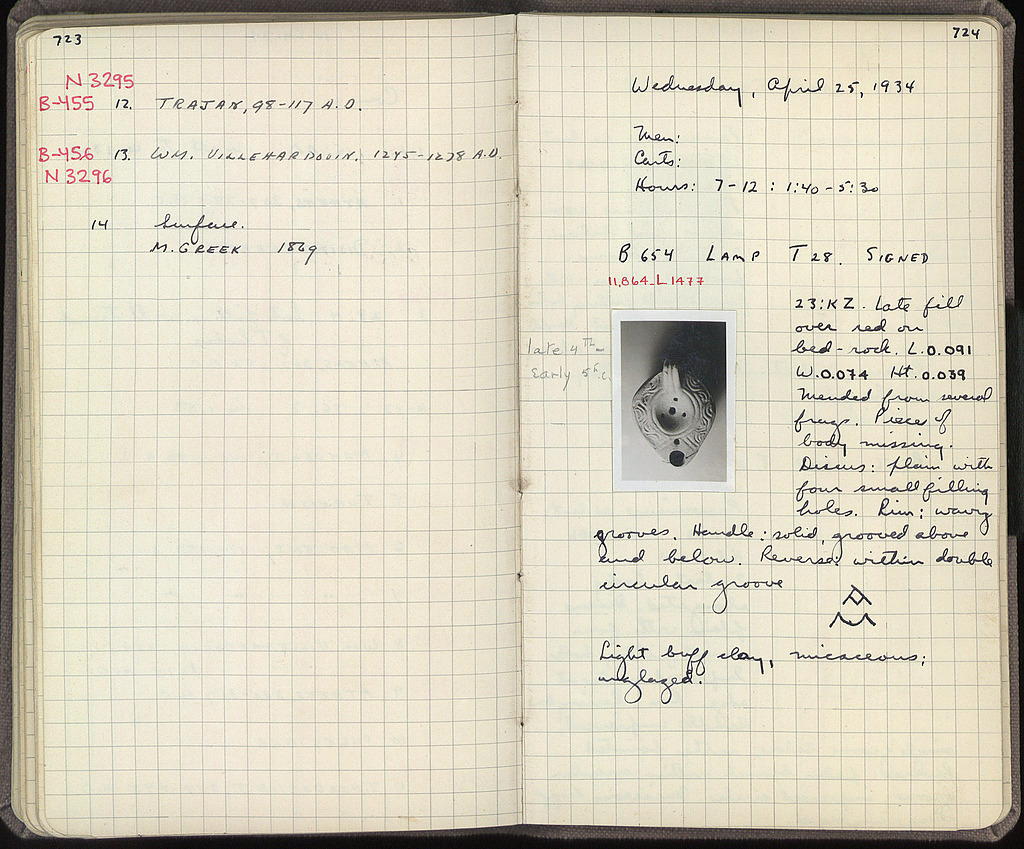 723
N 3295
B-455 12. TRAJAN, 98-117 A.D.
B-456 13. WM. VILLEHARDOUIN. 1245-1278 A.D.
N 3296
14 Surface.
M. GREEK 1869
724
Wednesday, April 25, 1934
Men:
Carts:
Hours: 7-12 : 1:40-5:30
B 654 LAMP T 28. SIGNED
11,864-L 1477
late 4th-
early 5th.c.
23:KZ. Late fill
over red on
bed-rock. L.0.091
W.0.074 Ht.0.039
Mended from several
frags. Piece of
body missing.
Discus: plain with
four small filling
holes. Rim: wavy
grooves. Handle: solid, grooved above
and below. Reverse: within double
circular groove
Light buff clay, micaceous;
unglazed.